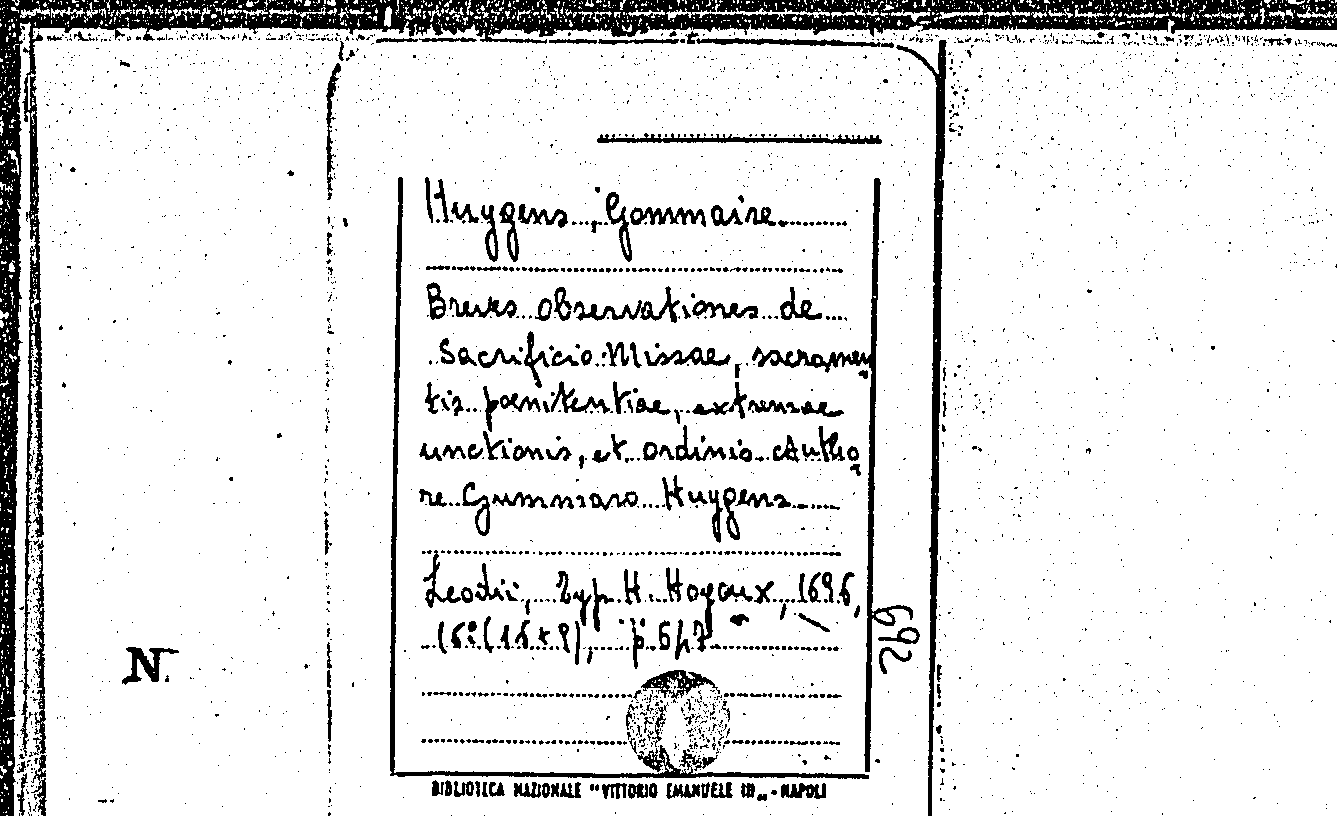 Huygens, Gommaire
Breves observationes de
Sacrificio Missae, sacramen
tis poenitentiae, extremae
unctionis, et ordinis Autho
re Gummaro Huygens
Leodii, Typ. H. Hoyoux, 1696,
16º (16x9), p. 647
692
N.
BIBLIOTECA NAZIONALE "VITTORIO EMANUELE III" - NAPOLI